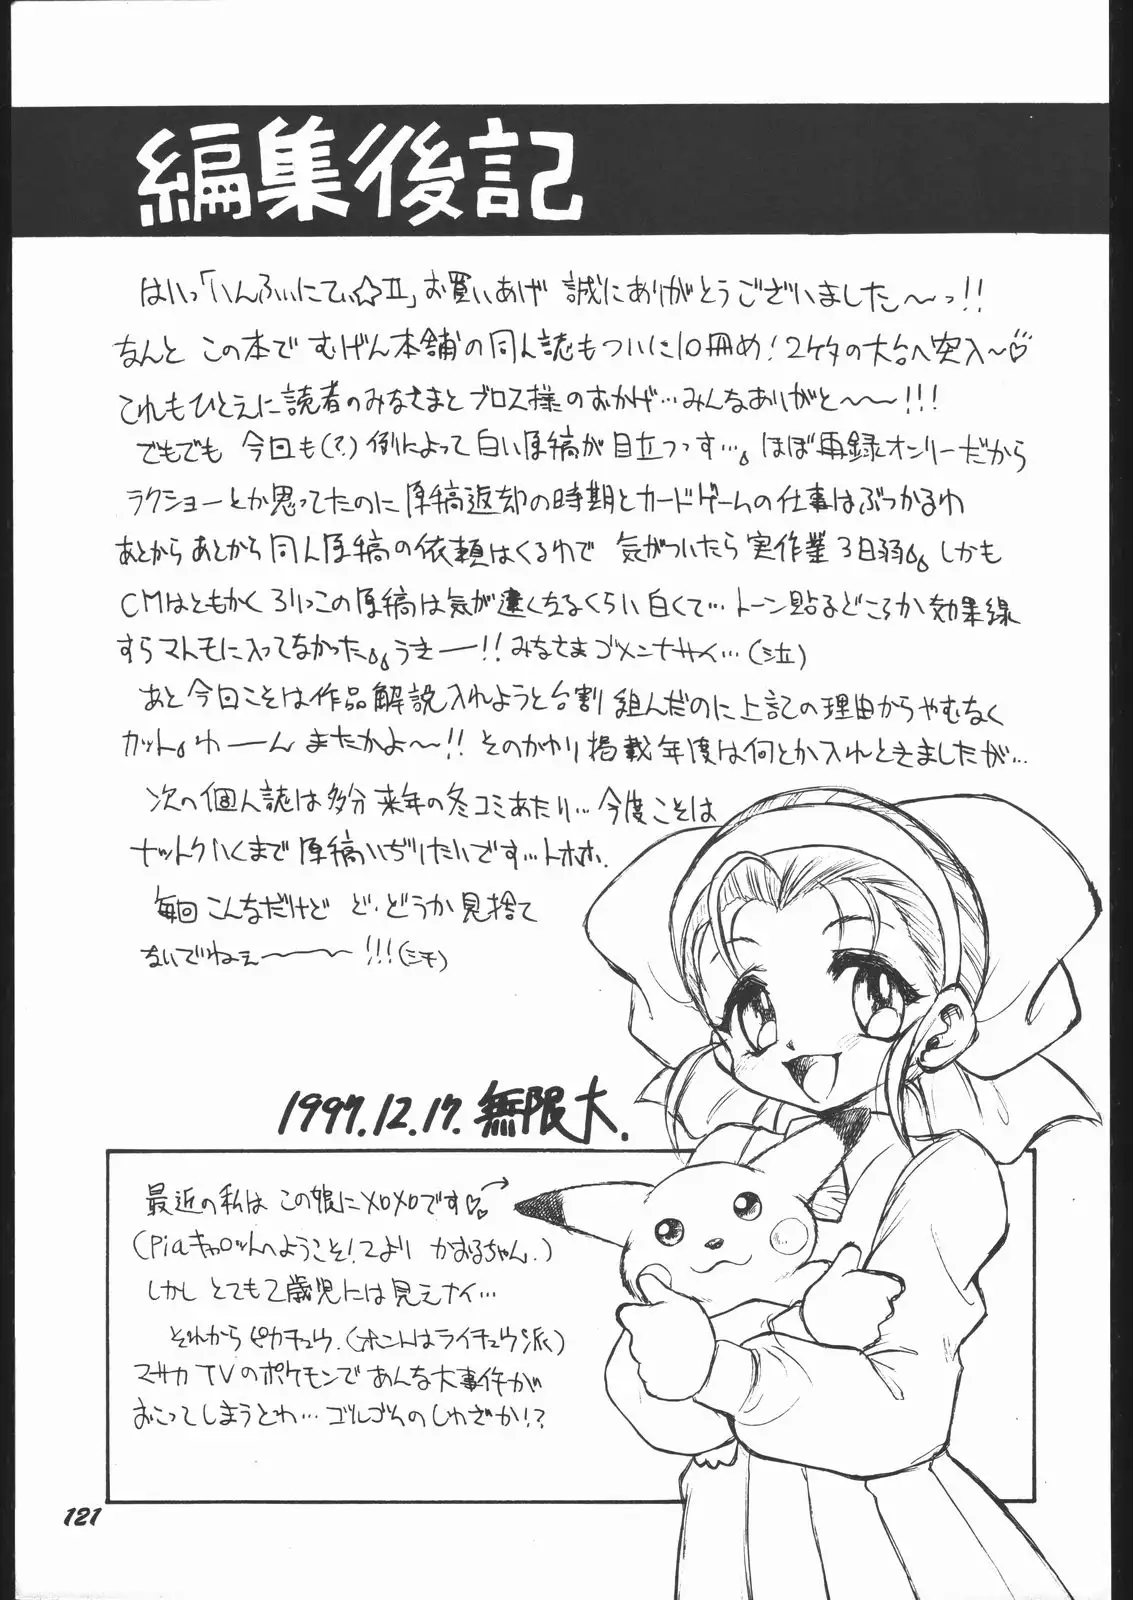 編集後記
はいっ「いんふぃにてぃ☆II」お買いあげ 誠にありがとうございました〜っ!!
なんと この本で むげん本舗の同人誌もついに10冊め!2ケタの大台へ突入〜♡
これもひとえに読者のみなさまとブロス様のおかげ…みんなありがと〜〜〜!!!
でもでも 今回も(?)例によって白い原稿が目立つっす…。ほぼ再録オンリーだから
ラクショーとか思ってたのに原稿返却の時期とカードゲームの仕事はぶっかるわ
あとからあとから同人原稿の依頼はくるわで 気がついたら実作業3日弱。。しかも
CMはともかくろりっこの原稿は気が遠くなるくらい白くて…トーン貼るどころか効果線
すらマトモに入ってなかった。。うきーー!!みなさまゴメンナサイ…(泣)
あと今回こそは作品解説入れようと台割組んだのに上記の理由からやむなく
カット。わーーん またかよ〜!!そのかわり掲載年度は何とか入れときましたが…
次の個人誌は多分来年の冬コミあたり…今度こそは
ナットクいくまで原稿いぢりたいです…トホホ.
毎回こんなだけど ど・どうか見捨て
ないでねぇ〜〜〜!!!(汗)
1997.12.17.無限大.
最近の私は この娘にメロメロです♡→
(Piaキャロットへようこそ!2より かおるちゃん.)
しかし とても2歳児には見えナイ…
それからピカチュウ.(ホントはライチュウ派)
マサカTVのポケモンであんな大事件が
おこってしまうとわ…ゴルゴムのしわざか!?
121